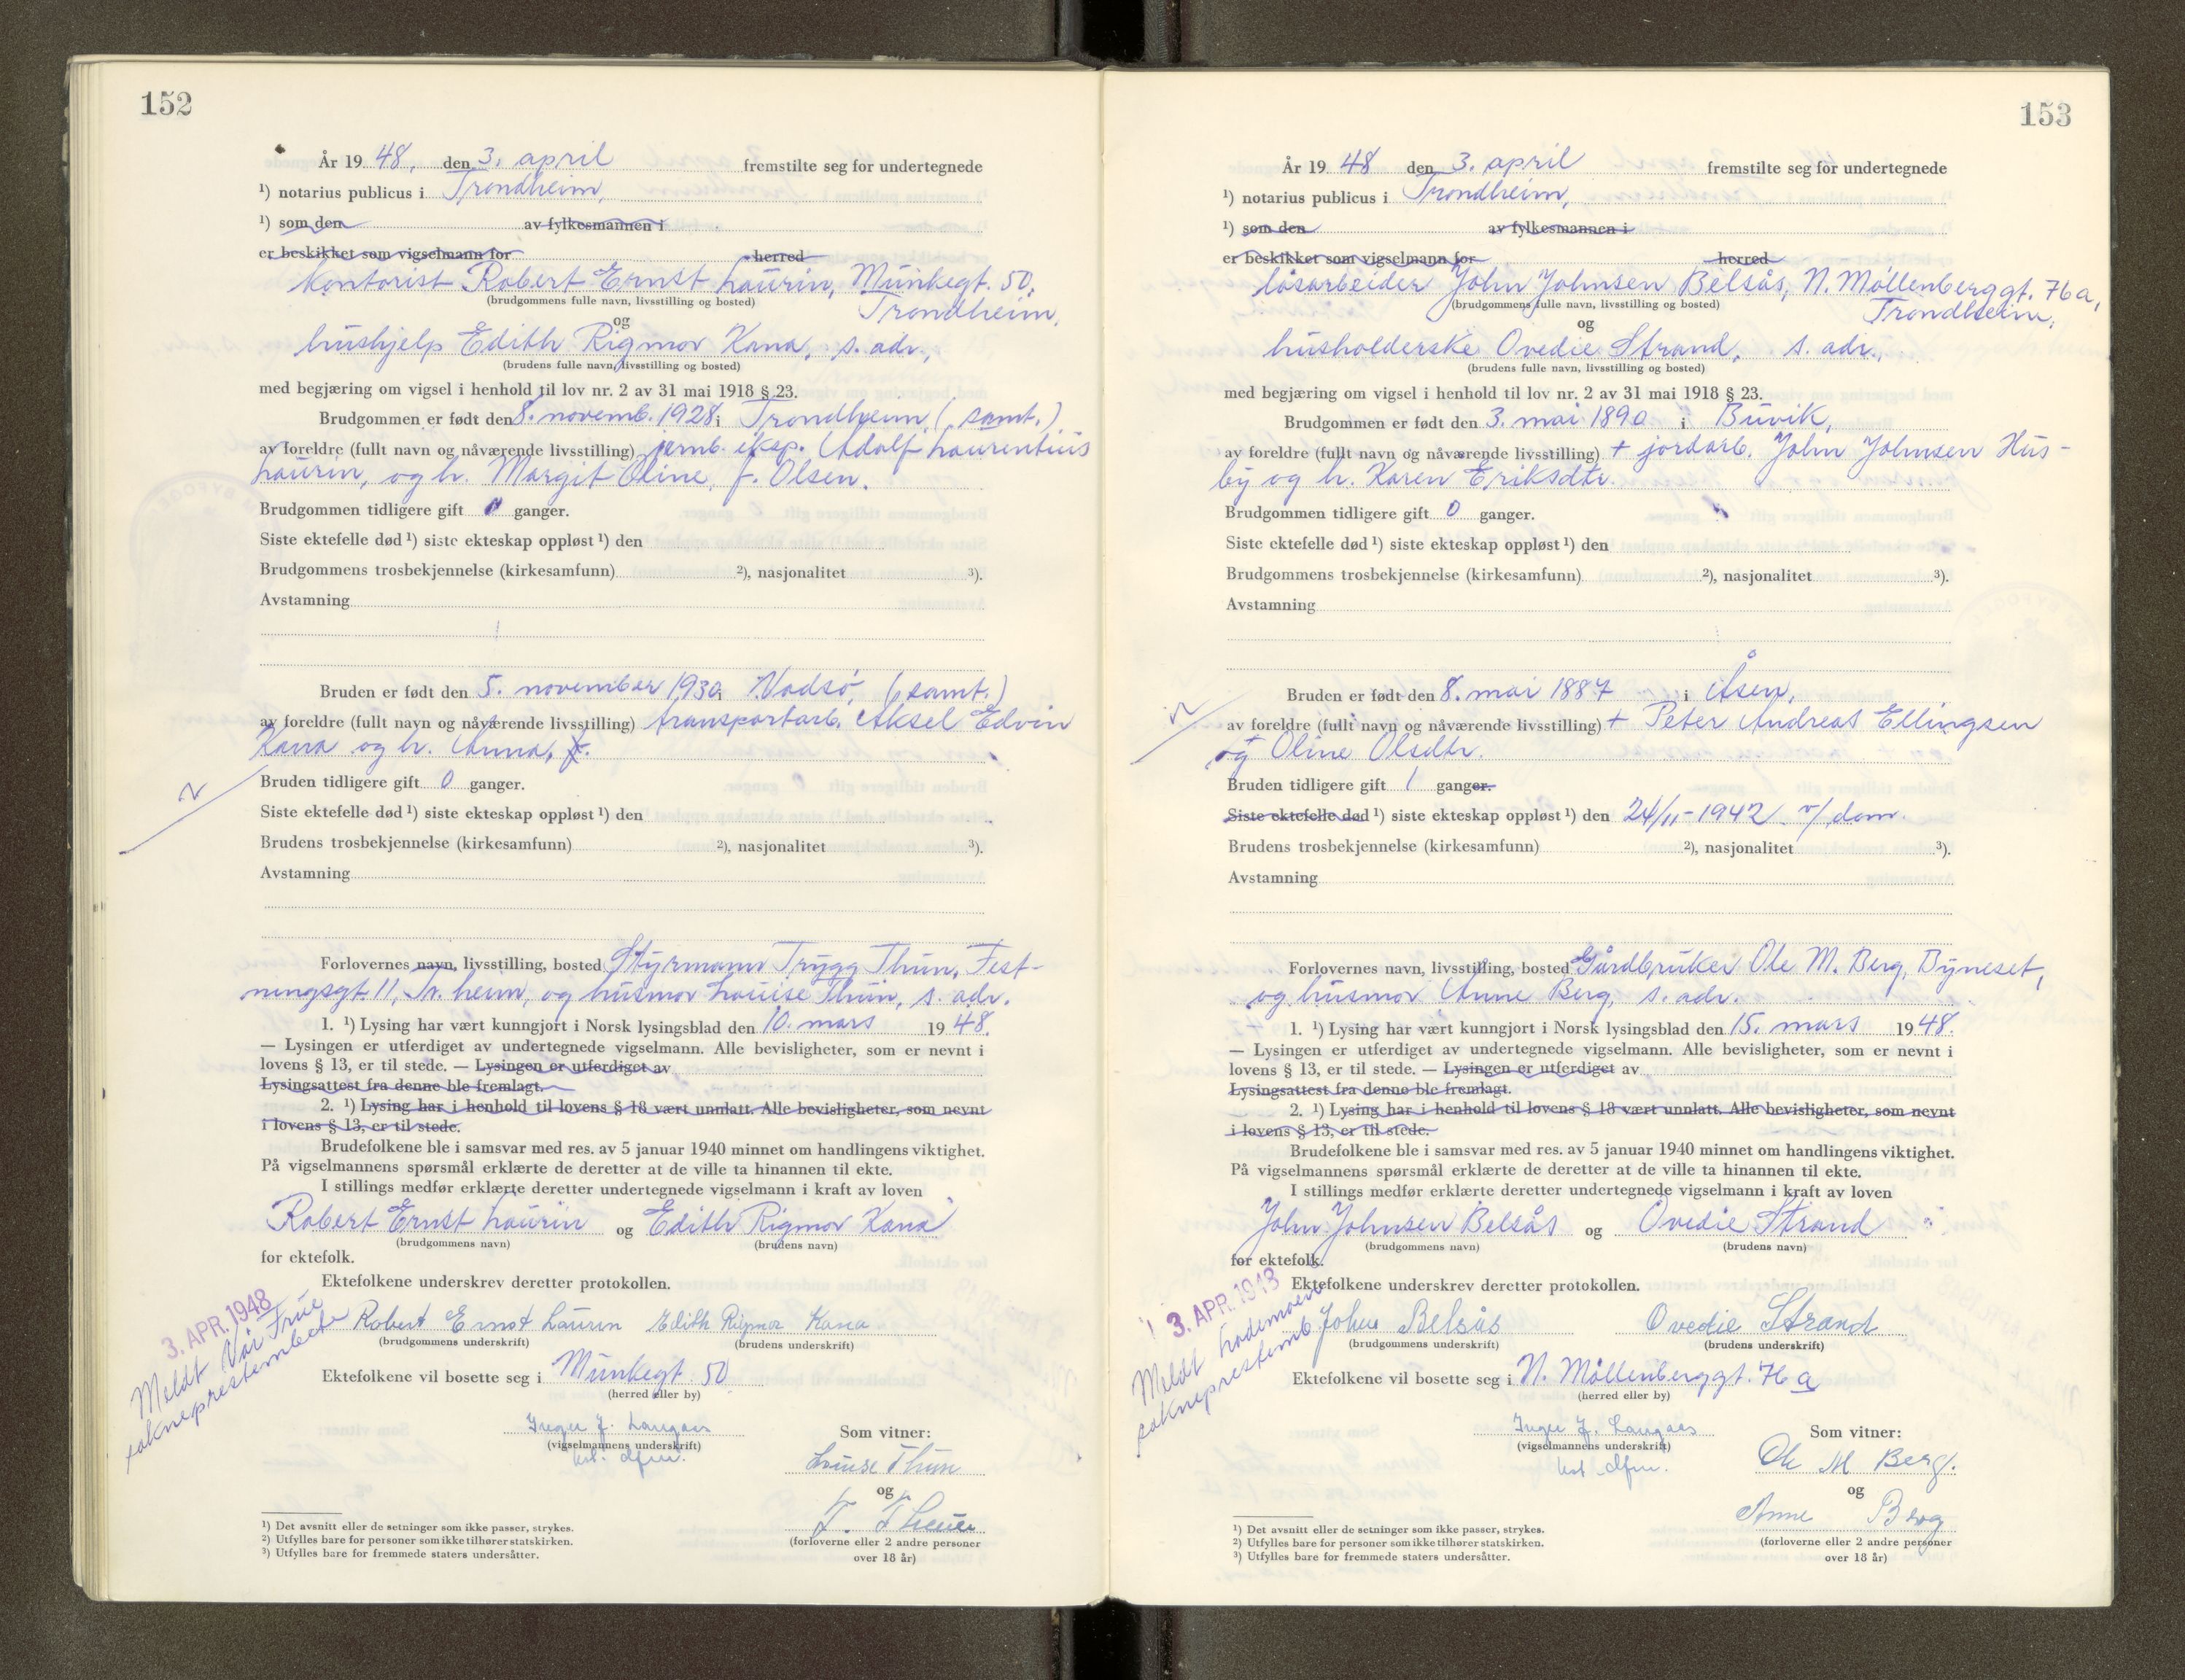 152
År 19 48, den 3. april fremstilte seg for undertegnede
¹) notarius publicus i Trondheim,
¹) som den av fylkesmannen i
er beskikket som vigselmann for herred
kontorist Robert Ernst Laurin, Munkegt. 50,
(brudgommens fulle navn, livsstilling og bosted)
Trondheim,
og
hushjelp Edith Rigmor Kana, s. adr.,
(brudens fulle navn, livsstilling og bosted)
med begjæring om vigsel i henhold til lov nr. 2 av 31 mai 1918 § 23.
Brudgommen er født den 8. novemb. 1928 i Trondheim, (samt.)
av foreldre (fullt navn og nåværende livsstilling) jernb. eksp. Adolf Laurentius
Laurin, og h. Margit Oline, f. Olsen.
Brudgommen tidligere gift 0 ganger.
Siste ektefelle død ¹) siste ekteskap oppløst ¹) den
Brudgommens trosbekjennelse (kirkesamfunn) ²), nasjonalitet ³).
Avstamning
Bruden er født den 5. november 1930 i Vadsö, (samt.)
av foreldre (fullt navn og nåværende livsstilling) transportarb. Aksel Edvin
Kana og h. Anna, f.
Bruden tidligere gift 0 ganger.
Siste ektefelle død ¹) siste ekteskap oppløst ¹) den
Brudens trosbekjennelse (kirkesamfunn) ²), nasjonalitet ³).
Avstamning
Forlovernes navn, livsstilling, bosted Styrmann Trygg Thun, Fest-
ningsgt. 11, Tr.heim, og husmor Louise Thun, s. adr.
1. ¹) Lysing har vært kunngjort i Norsk lysingsblad den 10. mars 19 48.
— Lysingen er utferdiget av undertegnede vigselmann. Alle bevisligheter, som er nevnt i
lovens § 13, er til stede. — Lysingen er utferdiget av
Lysingsattest fra denne ble fremlagt.
2. ¹) Lysing har i henhold til lovens § 18 vært unnlatt. Alle bevisligheter, som nevnt
i lovens § 13, er til stede.
Brudefolkene ble i samsvar med res. av 5 januar 1940 minnet om handlingens viktighet.
På vigselmannens spørsmål erklærte de deretter at de ville ta hinannen til ekte.
I stillings medfør erklærte deretter undertegnede vigselmann i kraft av loven
Robert Ernst Laurin og Edith Rigmor Kana
(brudgommens navn) (brudens navn)
for ektefolk.
Ektefolkene underskrev deretter protokollen.
3. APR. 1948
Meldt Vår Frue
sokneprestembete
Robert Ernst Laurin Edith Rigmor Kana
(brudgommens underskrift) (brudens underskrift)
Ektefolkene vil bosette seg i Munkegt. 50
(herred eller by)
Inger J. Langaas
(vigselmannens underskrift)
Som vitner:
Louise Thun
og
T. Thun
(forloverne eller 2 andre personer
over 18 år)
¹) Det avsnitt eller de setninger som ikke passer, strykes.
²) Utfylles bare for personer som ikke tilhører statskirken.
³) Utfylles bare for fremmede staters undersåtter.
153
År 19 48 den 3. april fremstilte seg for undertegnede
¹) notarius publicus i Trondheim,
¹) som den av fylkesmannen i
er beskikket som vigselmann for herred
løsarbeider John Johnsen Belsås, N. Möllenberggt. 76 a,
(brudgommens fulle navn, livsstilling og bosted)
Trondheim,
og
husholderske Ovedie Strand, s. adr.,
(brudens fulle navn, livsstilling og bosted)
med begjæring om vigsel i henhold til lov nr. 2 av 31 mai 1918 § 23.
Brudgommen er født den 3. mai 1890 i Buvik,
av foreldre (fullt navn og nåværende livsstilling) + jordarb. John Johnsen Hus-
by og h. Karen Eriksdtr.
Brudgommen tidligere gift 0 ganger.
Siste ektefelle død ¹) siste ekteskap oppløst ¹) den
Brudgommens trosbekjennelse (kirkesamfunn) ²), nasjonalitet ³).
Avstamning
Bruden er født den 8. mai 1887 i Åsen,
av foreldre (fullt navn og nåværende livsstilling) + Peter Andreas Ellingsen
og Oline Olsdtr.
Bruden tidligere gift 1 ganger.
Siste ektefelle død ¹) siste ekteskap oppløst ¹) den 24/11-1942 v/ dom.
Brudens trosbekjennelse (kirkesamfunn) ²), nasjonalitet ³).
Avstamning
Forlovernes navn, livsstilling, bosted Gårdbruker Ole M. Berg, Byneset,
og husmor Anne Berg, s. adr.
1. ¹) Lysing har vært kunngjort i Norsk lysingsblad den 15. mars 19 48.
— Lysingen er utferdiget av undertegnede vigselmann. Alle bevisligheter, som er nevnt i
lovens § 13, er til stede. — Lysingen er utferdiget av
Lysingsattest fra denne ble fremlagt.
2. ¹) Lysing har i henhold til lovens § 18 vært unnlatt. Alle bevisligheter, som nevnt
i lovens § 13, er til stede.
Brudefolkene ble i samsvar med res. av 5 januar 1940 minnet om handlingens viktighet.
På vigselmannens spørsmål erklærte de deretter at de ville ta hinannen til ekte.
I stillings medfør erklærte deretter undertegnede vigselmann i kraft av loven
John Johnsen Belsås og Ovedie Strand
(brudgommens navn) (brudens navn)
for ektefolk.
Ektefolkene underskrev deretter protokollen.
3. APR. 1948
Meldt Lademoen
sokneprestemb.
John Belsås Ovedie Strand
(brudgommens underskrift) (brudens underskrift)
Ektefolkene vil bosette seg i N. Möllenberggt. 76 a
(herred eller by)
Inger J. Langaas
(vigselmannens underskrift)
Som vitner:
Ole M Berg.
og
Anne Berg
(forloverne eller 2 andre personer
over 18 år)
¹) Det avsnitt eller de setninger som ikke passer, strykes.
²) Utfylles bare for personer som ikke tilhører statskirken.
³) Utfylles bare for fremmede staters undersåtter.